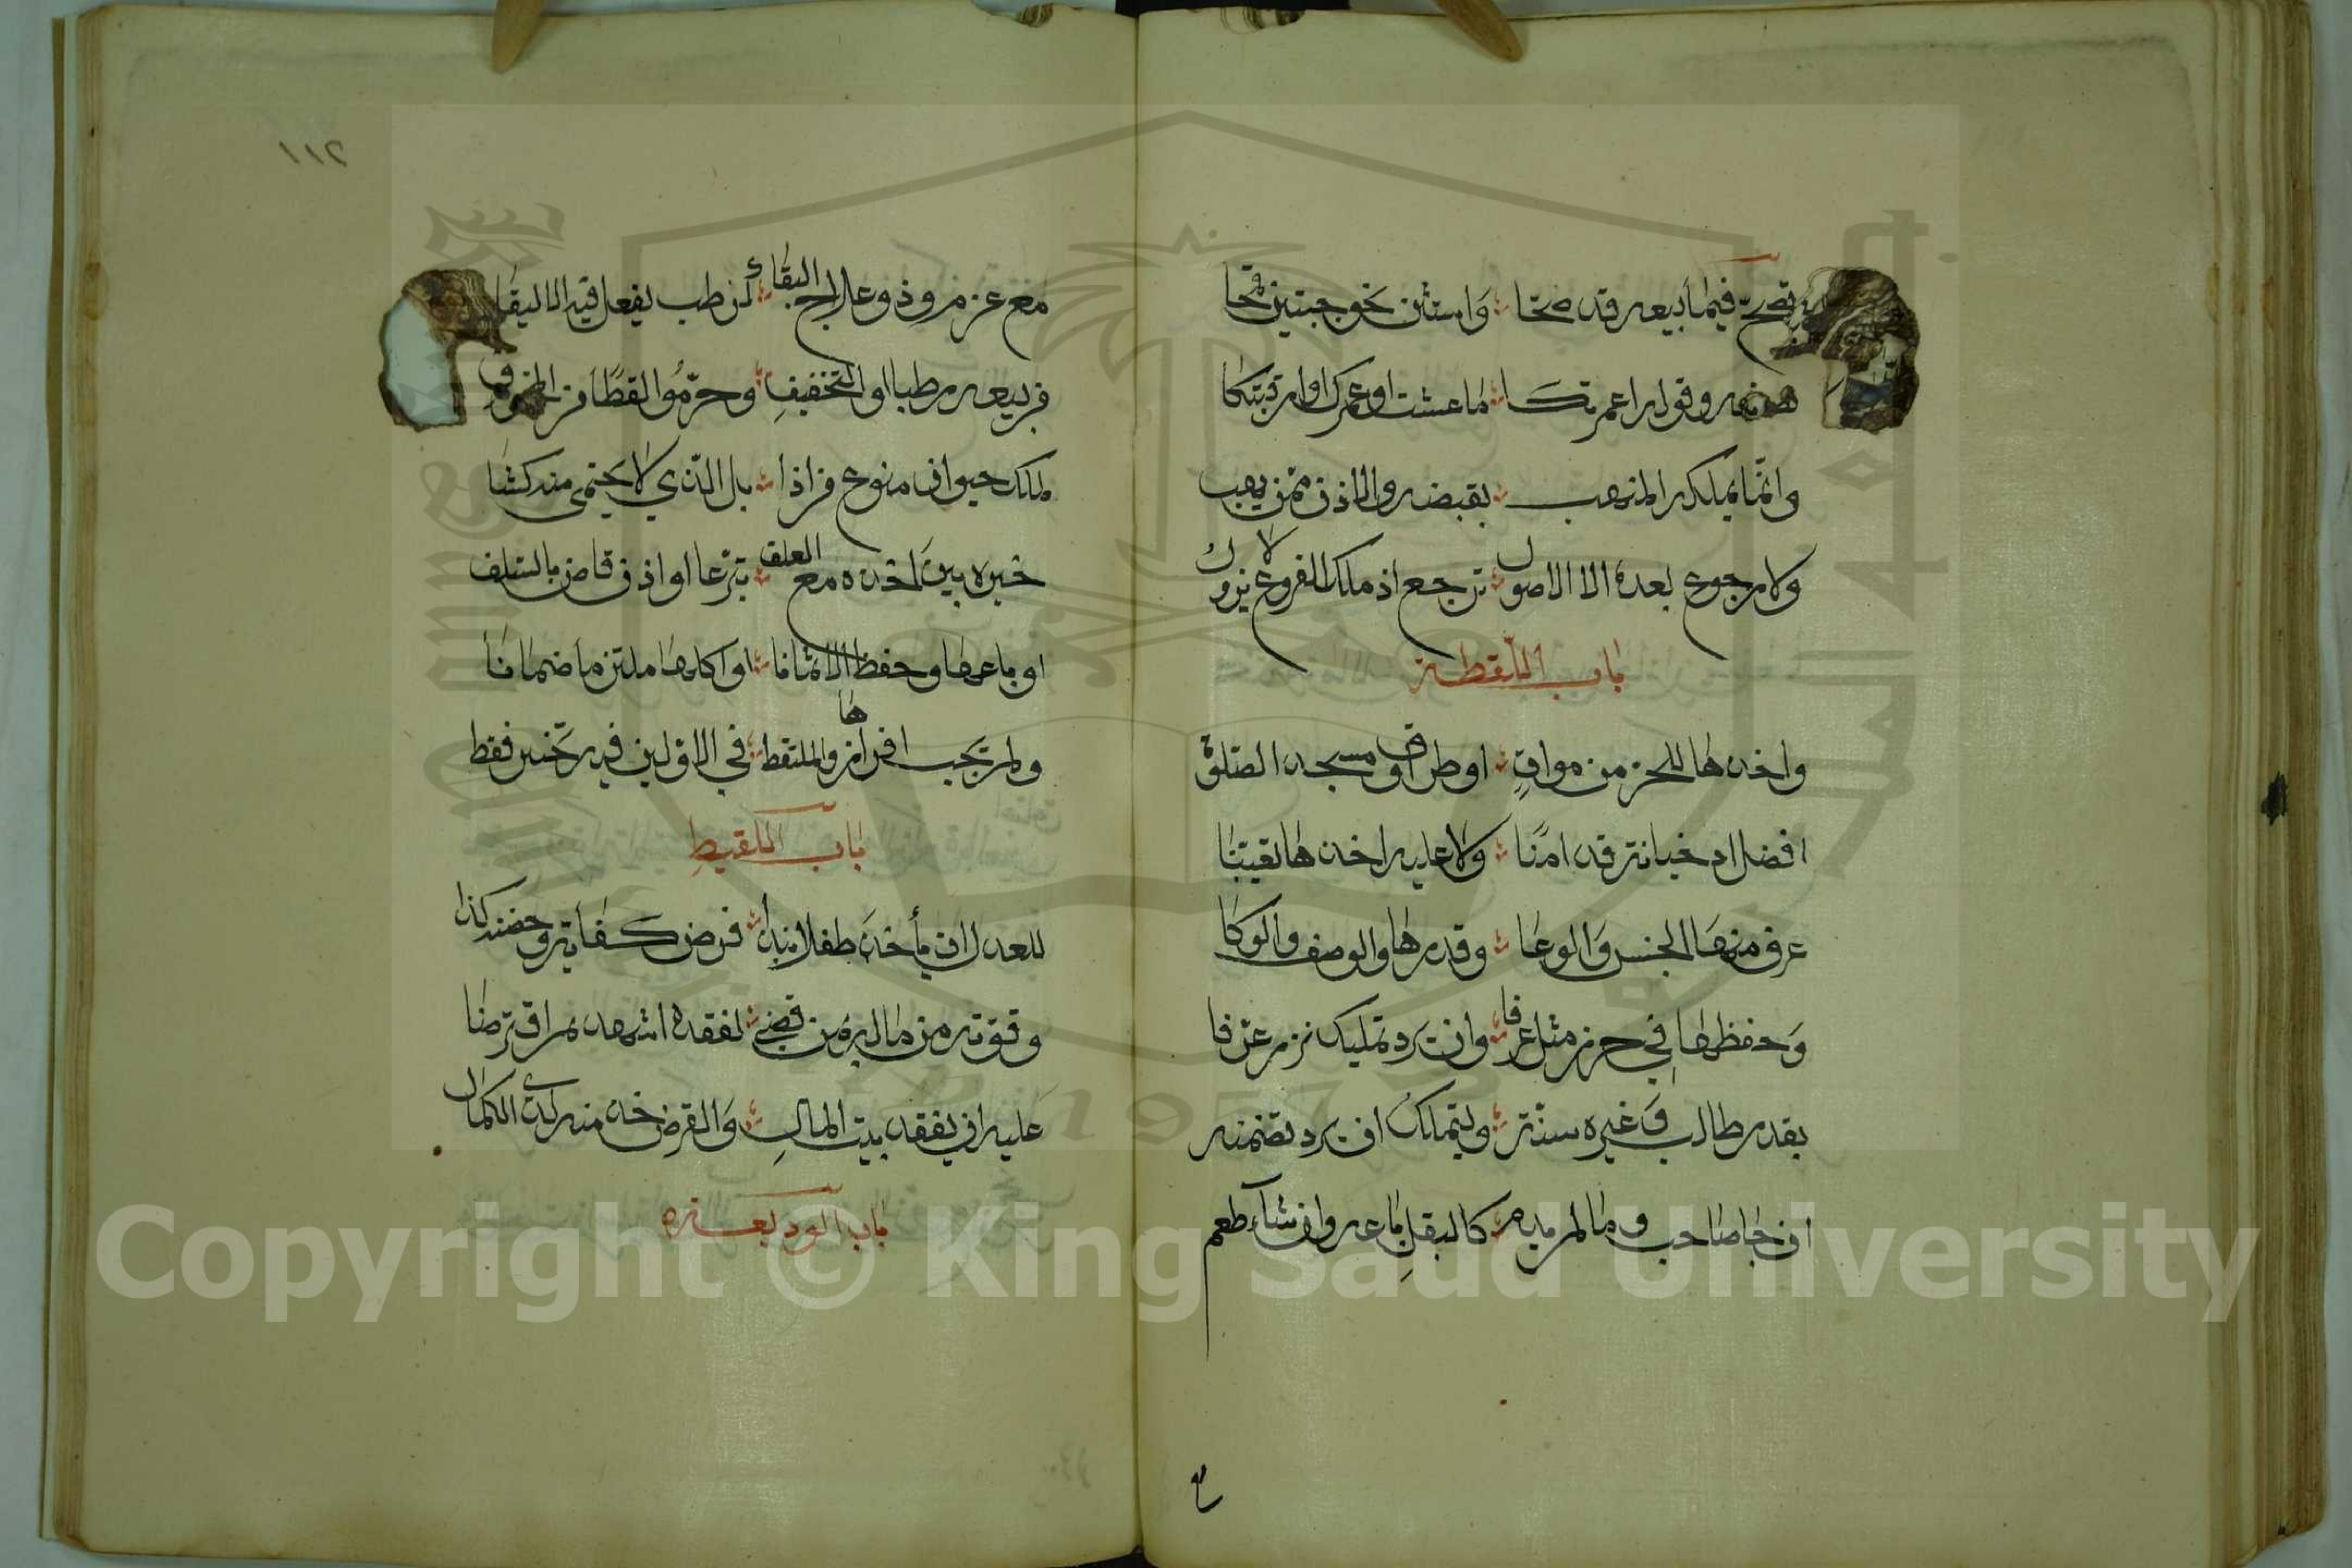 تصح فيما بيعه قد صححا واستثن نحو حبتين قمحا
وقوله اعمرتكا ما عشت او عمرك او ارقبتكا
وانما يملكه المتهب بقبضه والاذن ممن يهب
ولا رجوع بعده الا الاصول ترجع اذ ملك الفروع لا يزول
باب اللقطة
واخذها للحر من موات او طرق او مسجد الصلاة
افضل اذ خيانة قد امنا ولا عليه اخذها تعينا
عرف منها الجنس والوعا وقدرها والوصف والوكا
وحفظها في حرز مثل عرفا وان يرد تمليك نزر عرفا
بقدر طالب وغيره سنه وليتملك ان يرد تضمنه
ان جا صاحب وما لم يدم كالبقل باعه وان شاء طعم
٢١١
مع عزمه وذو علاج البقاء كرطب يفعل فيه الاليقا
من بيعه رطبا او التخفيف وحرموا لقطا من المخوف
ملك حيوان منوع من اذا بل الذي لا يحتمي منه كشا
خيره بين اخذه مع العلف تبرعا او اذن قاض بالسلف
او باعها وحفظ الاثمانا او اكلها ملتزما ضمانا
ولم تجب افرازها والملتقط في الاولين فيه تخيير فقط
باب اللقيط
للعدل ان يأخذ طفلا نبذا فرض كفاية وحضنه كذا
وقوته من ماله بمن قضى لفقده اشهد ثم اقترضا
عليه ان يفقد بيت المال والقرض خذ منه لدى الكمال
باب الوديعة
Copyright © King Saud University
1957